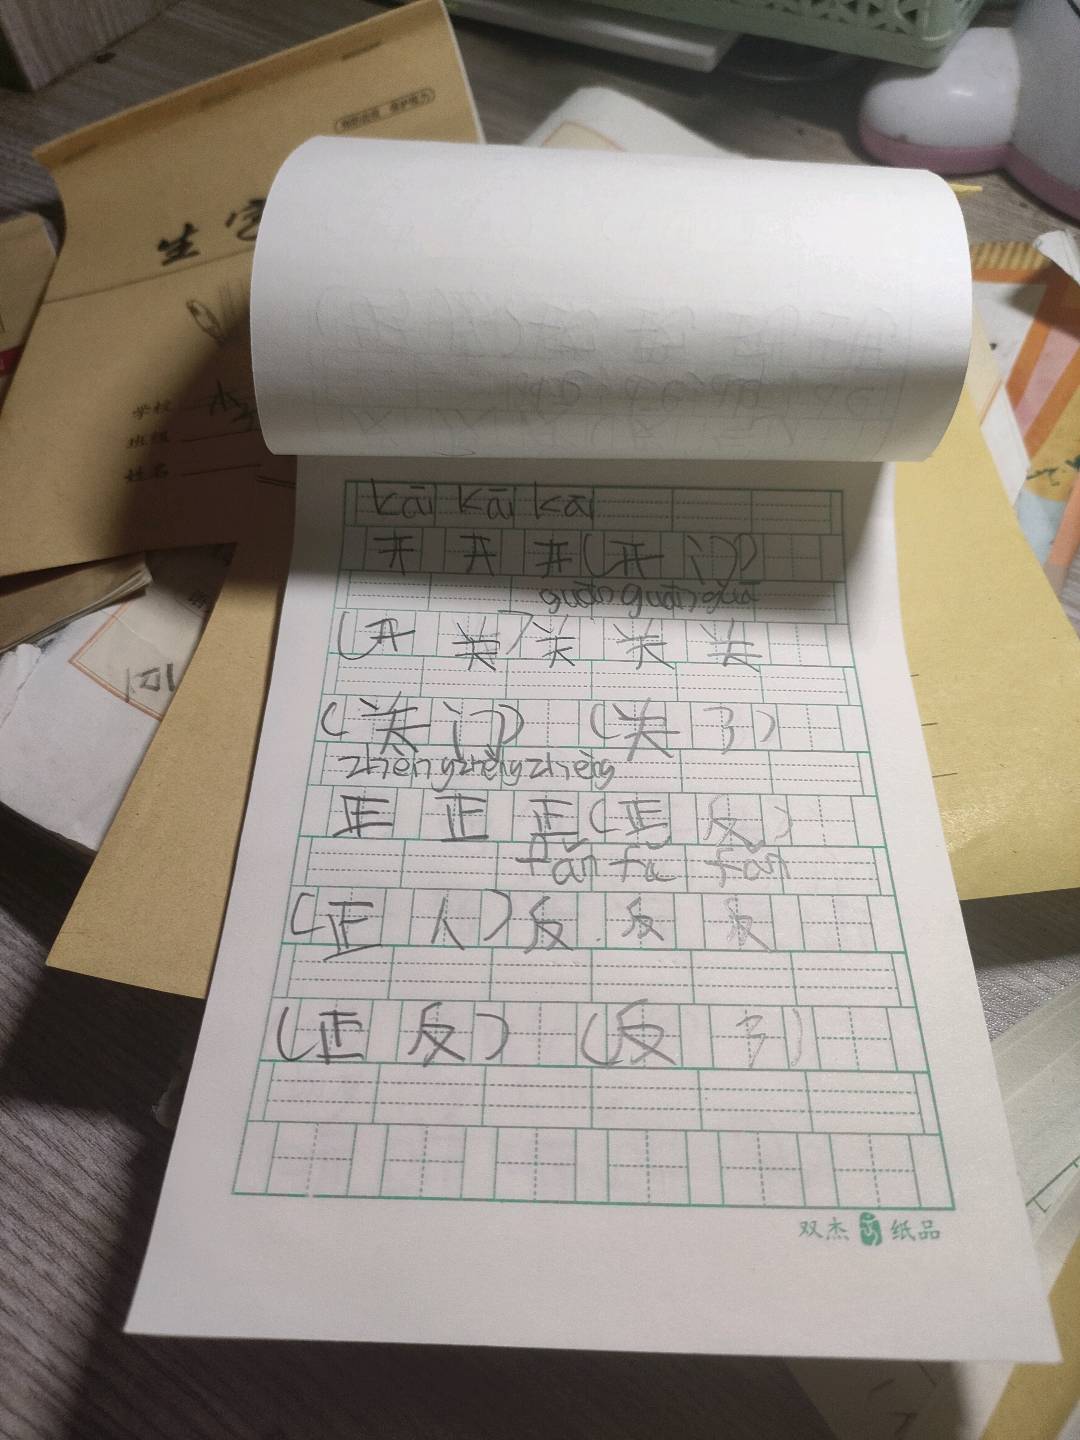 生字
学校
班级
姓名
kāi kāi kāi
开 开 开(开 门)
guān guān guā
(开 关)关 关 关
(关 门) (关 了)
zhèng zhèng zhèng
正 正 正(正 反)
fǎn fǎ fǎn
(正 人)反 反 反
(正 反) (反 了)
双杰 纸品